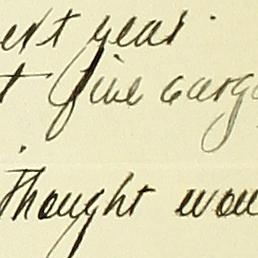 ext year.
t five cargo
thought wou